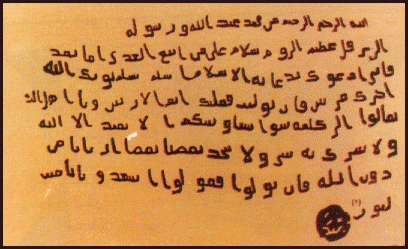 بسم الله الرحمن الرحيم من محمد عبد الله ورسوله
الى هرقل عظيم الروم سلام على من اتبع الهدى اما بعد
فانى ادعوك بدعاية الاسلام اسلم تسلم يوتك الله
اجرك مرتين فان توليت فعليك اثم الاريسيين ويا اهل الك
تعالوا الى كلمة سوا بيننا وبينكم الا نعبد الا الله
ولا نشرك به شيا ولا يتخذ بعضنا بعضا اربابا من
دون الله فان تولوا فقولوا اشهدوا بانا مس
لمون (؟)